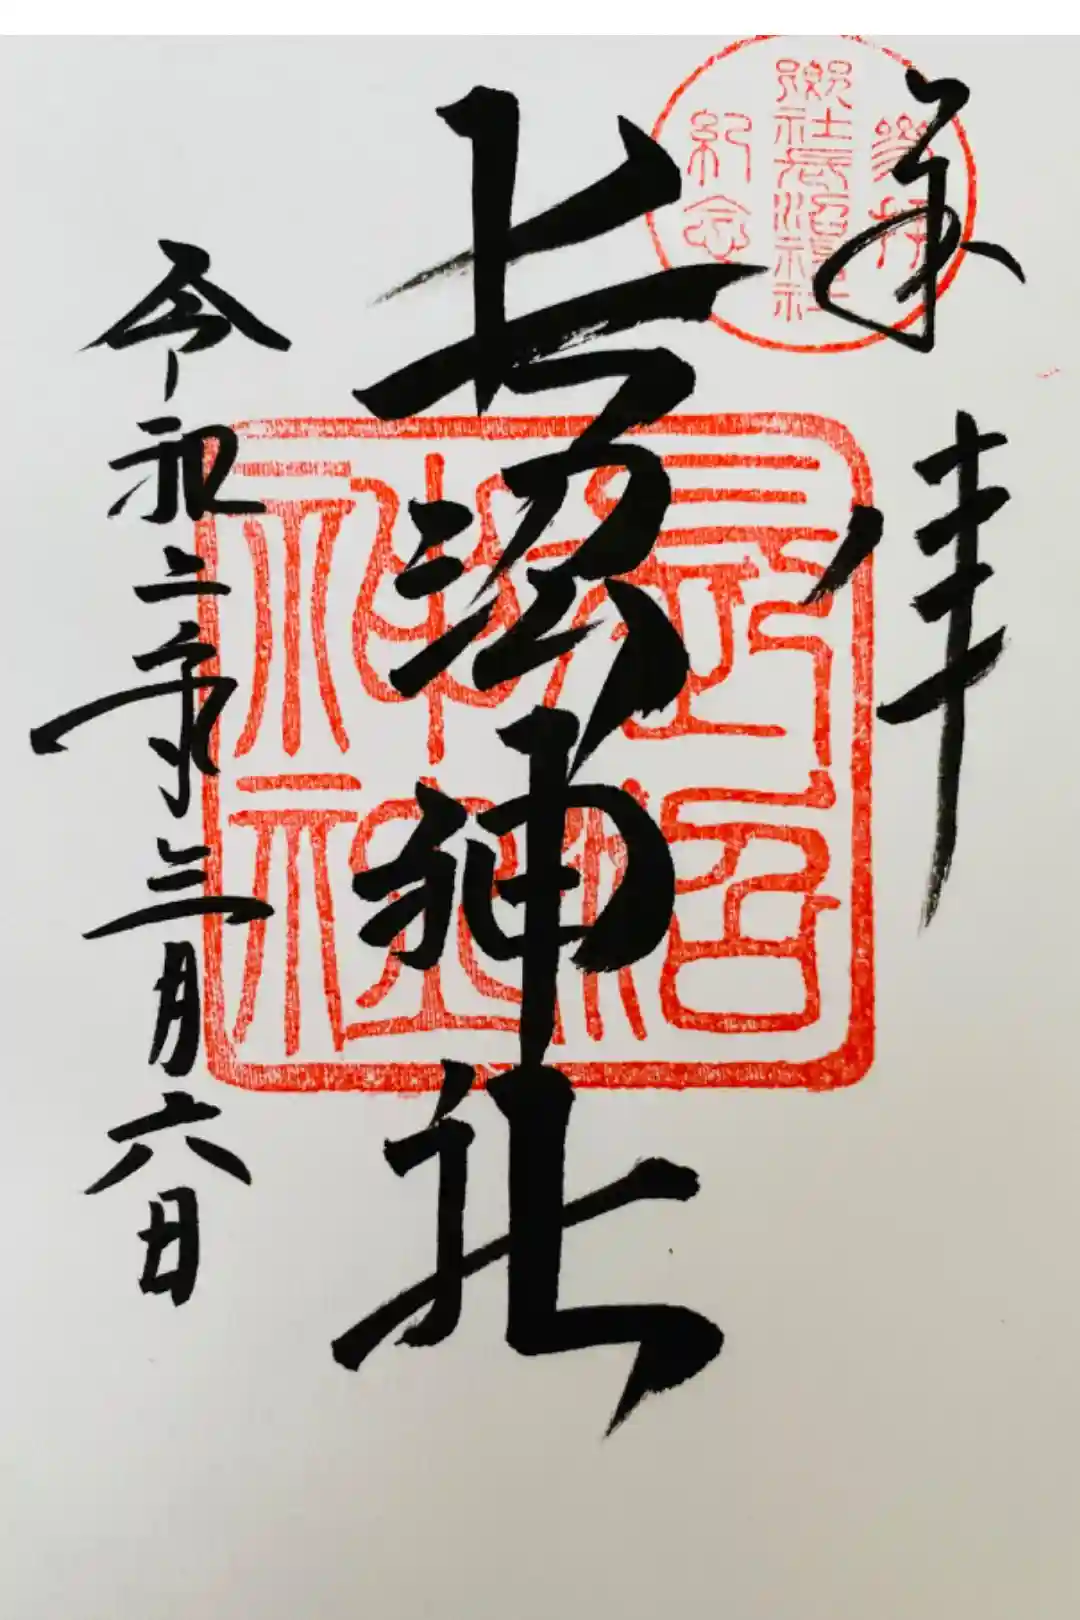 奉拝
參拜
郷社長沼神社
紀念
長沼神社
長沼
神社
令和二年三月六日